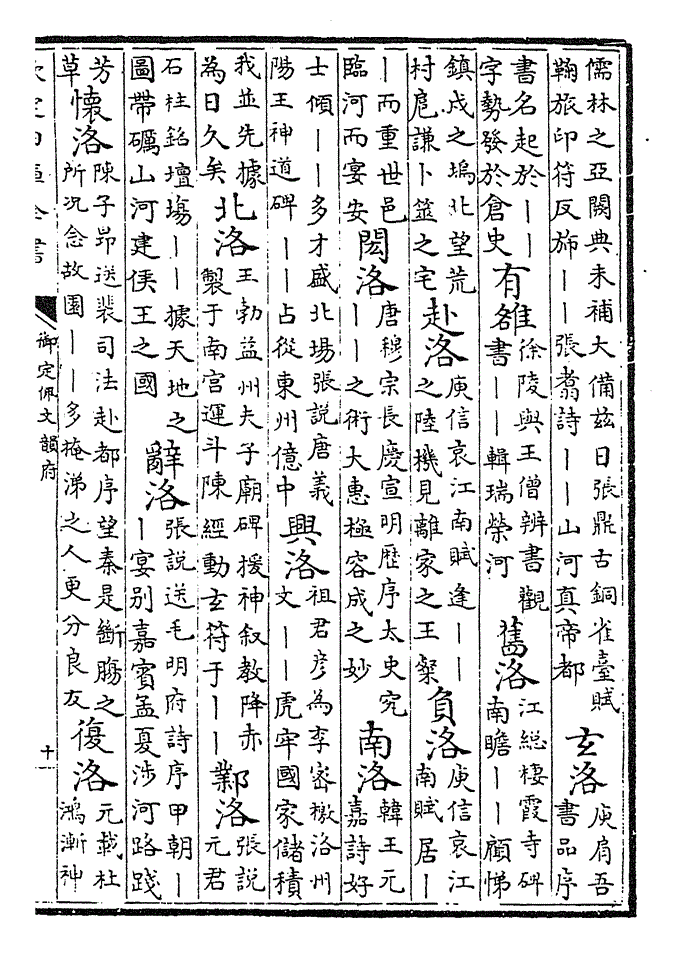 儒林之亞闕典未補大備茲日張鼎古銅雀臺賦
鞠旅印符反斾||張翥詩||山河真帝都
玄洛
庾肩吾
書品序
書名起於||
字勢發於倉史
有雒
徐陵與王僧辨書觀
書||輯瑞榮河
舊洛
江総棲霞寺碑
南瞻||顧悌
鎮戍之塢北望荒
村扈謙卜筮之宅
赴洛
庾信哀江南賦逢||
之陸機見離家之王粲
負洛
庾信哀江
南賦居|
|而重世邑
臨河而宴安
閎洛
唐穆宗長慶宣明厯序太史究
||之術大惠極容成之妙
南洛
韓王元
嘉詩好
士傾||多才盛北場張說唐義
陽王神道碑||占從東州億中
興洛
祖君彥為李密檄洛州
文||虎牢國家儲積
我並先據
為日久矣
北洛
王勃益州夫子廟碑援神叙教降赤
製于南宫運斗陳經動玄符于||
鄴洛
張說
元君
石柱銘壇塲||據天地之
圖帶礪山河建侯王之國
辭洛
張說送毛明府詩序甲朝|
|宴别嘉賓孟夏涉河路踐
芳
草
懷洛
陳子昻送裴司法赴都序望秦是斷腸之
所况念故園||多掩涕之人更分良友
復洛
元載杜
鴻漸神
欽定四庫全書
御定佩文韻府
十一